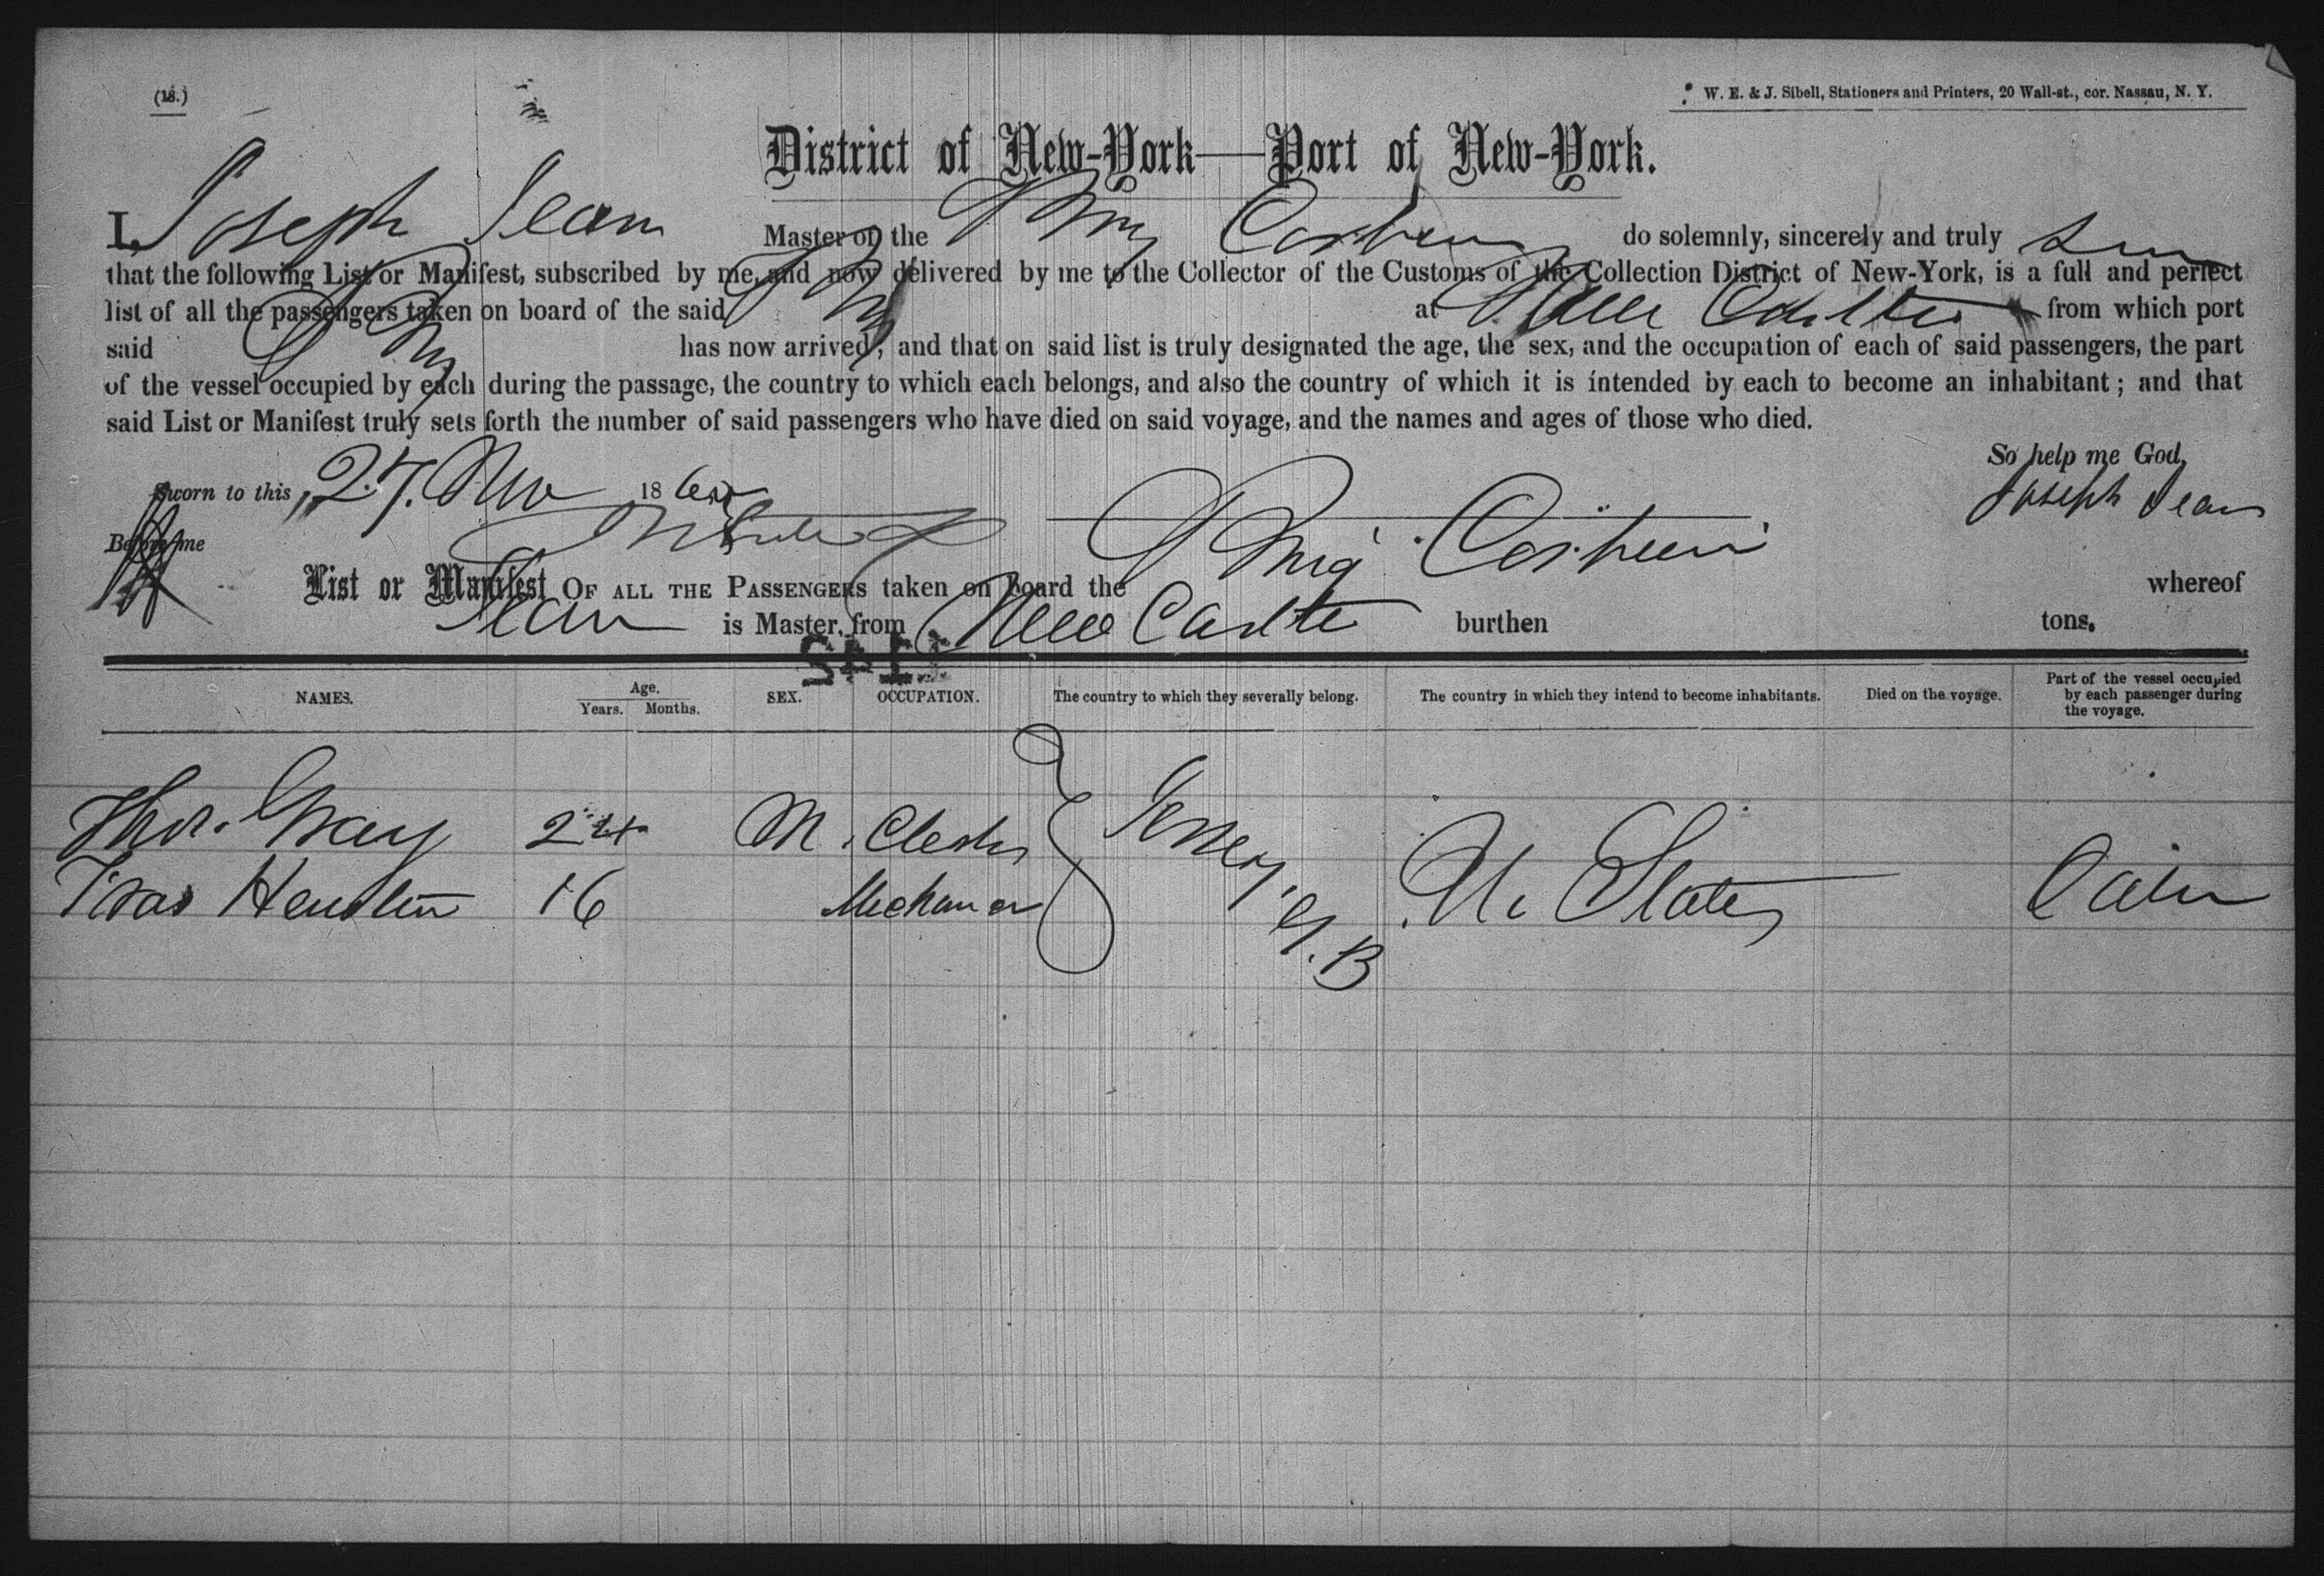 (18.)
W. E. & J. Sibell, Stationers and Printers, 20 Wall-st., cor. Nassau, N. Y.
District of New-York—Port of New-York.
I, Joseph Master of the Brig do solemnly, sincerely and truly
that the following List or Manifest, subscribed by me, and now delivered by me to the Collector of the Customs of the Collection District of New-York, is a full and perfect
list of all the passengers taken on board of the said Brig at New from which port
said Brig has now arrived; and that on said list is truly designated the age, the sex, and the occupation of each of said passengers, the part
of the vessel occupied by each during the passage, the country to which each belongs, and also the country of which it is intended by each to become an inhabitant; and that
said List or Manifest truly sets forth the number of said passengers who have died on said voyage, and the names and ages of those who died.
So help me God,
Sworn to this 27. Nov 18 Joseph
Before me
List or Manifest OF ALL THE PASSENGERS taken on board the Brig whereof
is Master, from New burthen tons.
NAMES. Age. Years. Months. SEX. OCCUPATION. The country to which they severally belong. The country in which they intend to become inhabitants. Died on the voyage. Part of the vessel occupied by each passenger during the voyage.
Thos. Gray 24 M. Clerk Jersey. G. B U. States Cabin
16 Mechanic